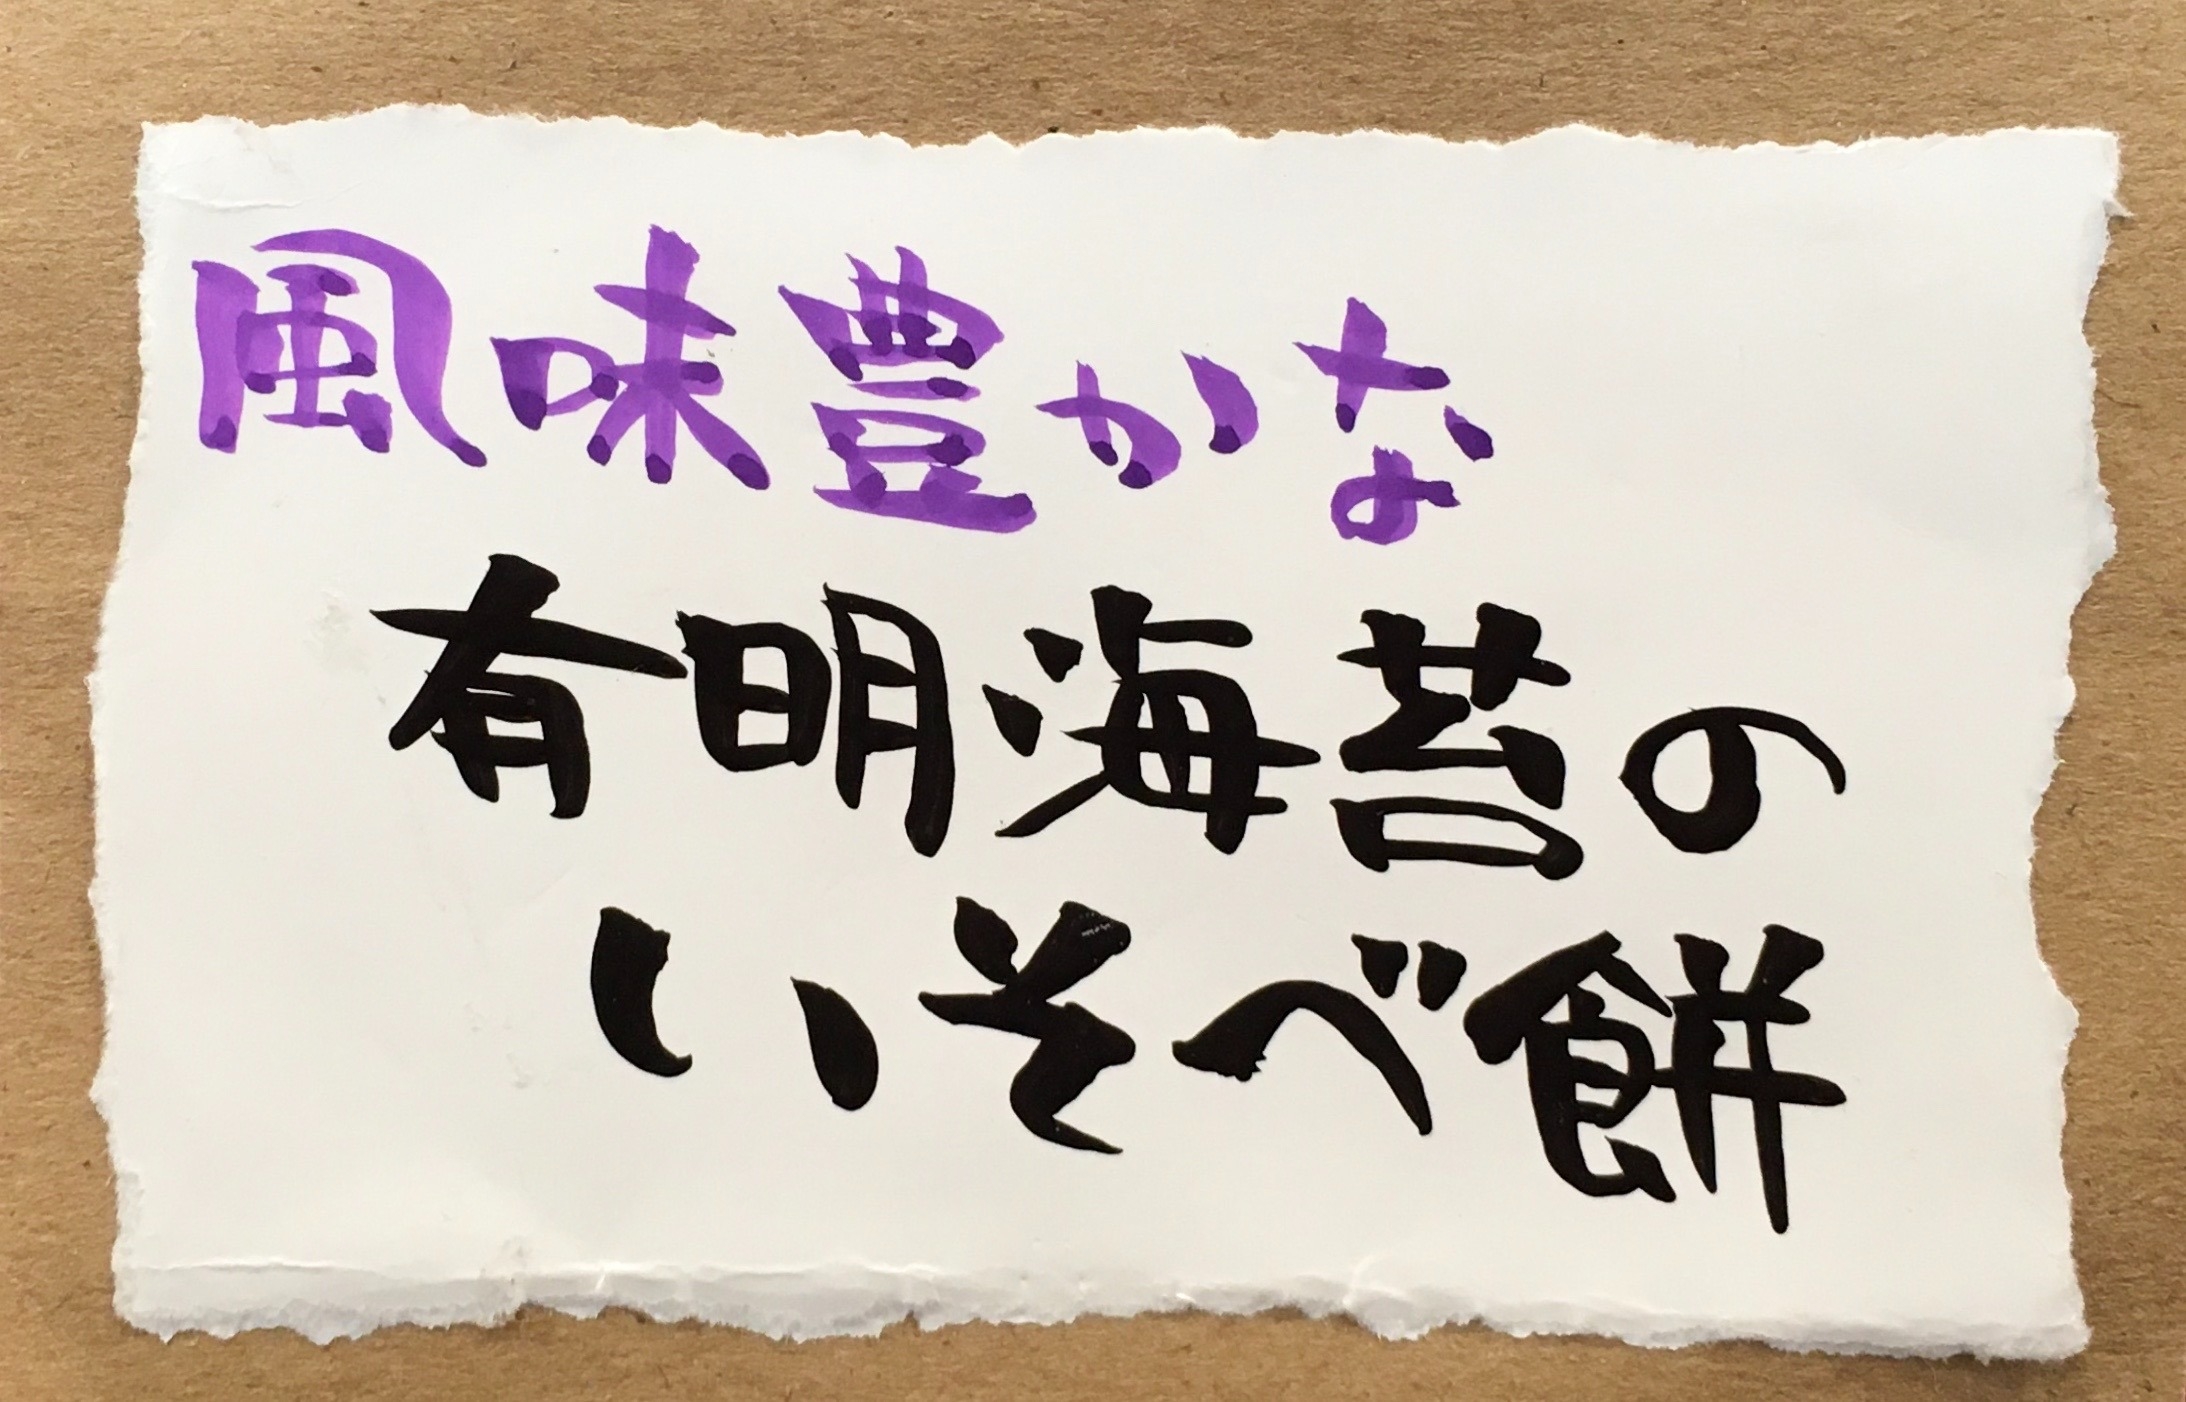 風味豊かな
有明海苔の
いそべ餅